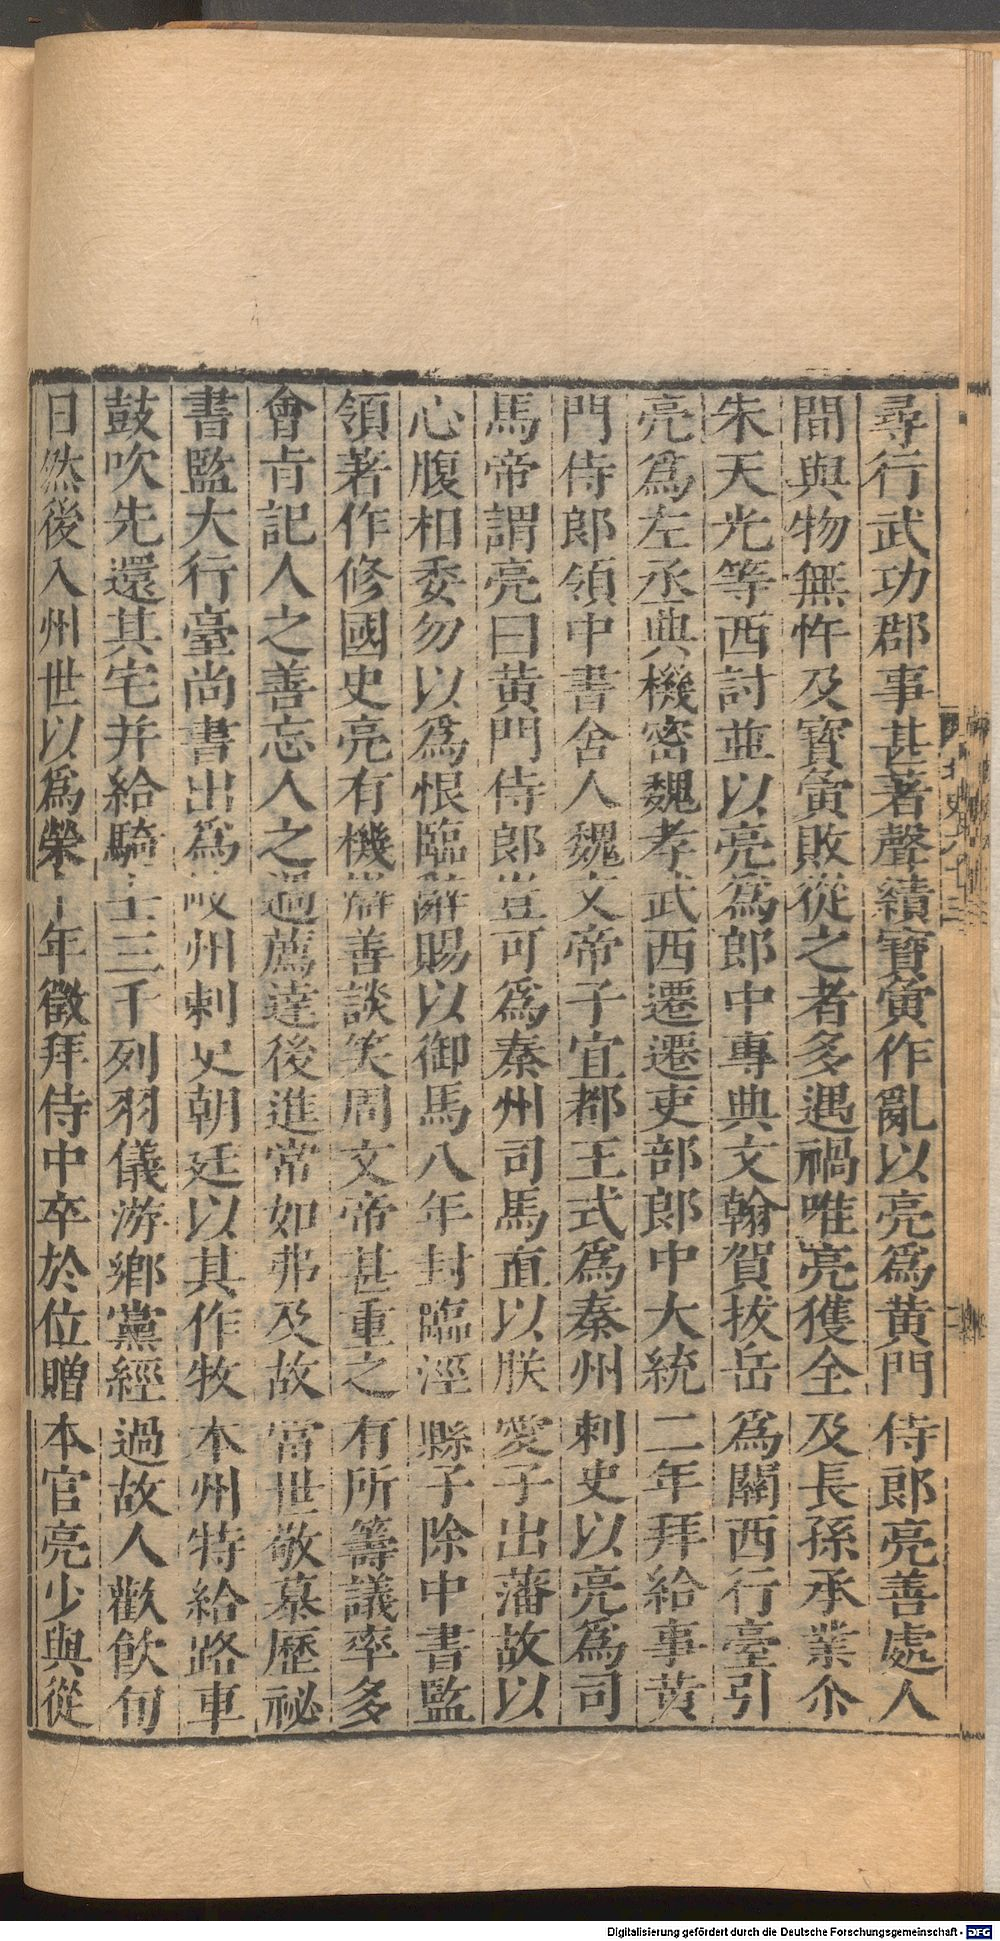 尋行武功郡事甚著聲績寶夤作亂以亮爲黃門侍郎亮善處人
間與物無忤及寶夤敗從之者多遇禍唯亮獲全及長孫承業尒
朱天光等西討並以亮爲郎中專典文翰賀拔岳爲關西行臺引
亮爲左丞典機密魏孝武西遷遷吏部郎中大統二年拜給事黃
門侍郎領中書舍人魏文帝子宜都王式爲秦州刺史以亮爲司
馬帝謂亮曰黃門侍郎豈可爲秦州司馬直以朕愛子出藩故以
心腹相委勿以爲恨臨辭賜以御馬八年封臨涇縣子除中書監
領著作修國史亮有機辯善談笑周文帝甚重之有所籌議率多
會旨記人之善忘人之過薦達後進常如弗及故當世敬慕歷祕
書監大行臺尚書出爲岐州刺史朝廷以其作牧本州特給路車
鼓吹先還其宅并給騎士三千列羽儀游鄉黨經過故人歡飲旬
日然後入州世以爲榮十年徵拜侍中卒於位贈本官亮少與從
Digitalisierung gefördert durch die Deutsche Forschungsgemeinschaft - DFG